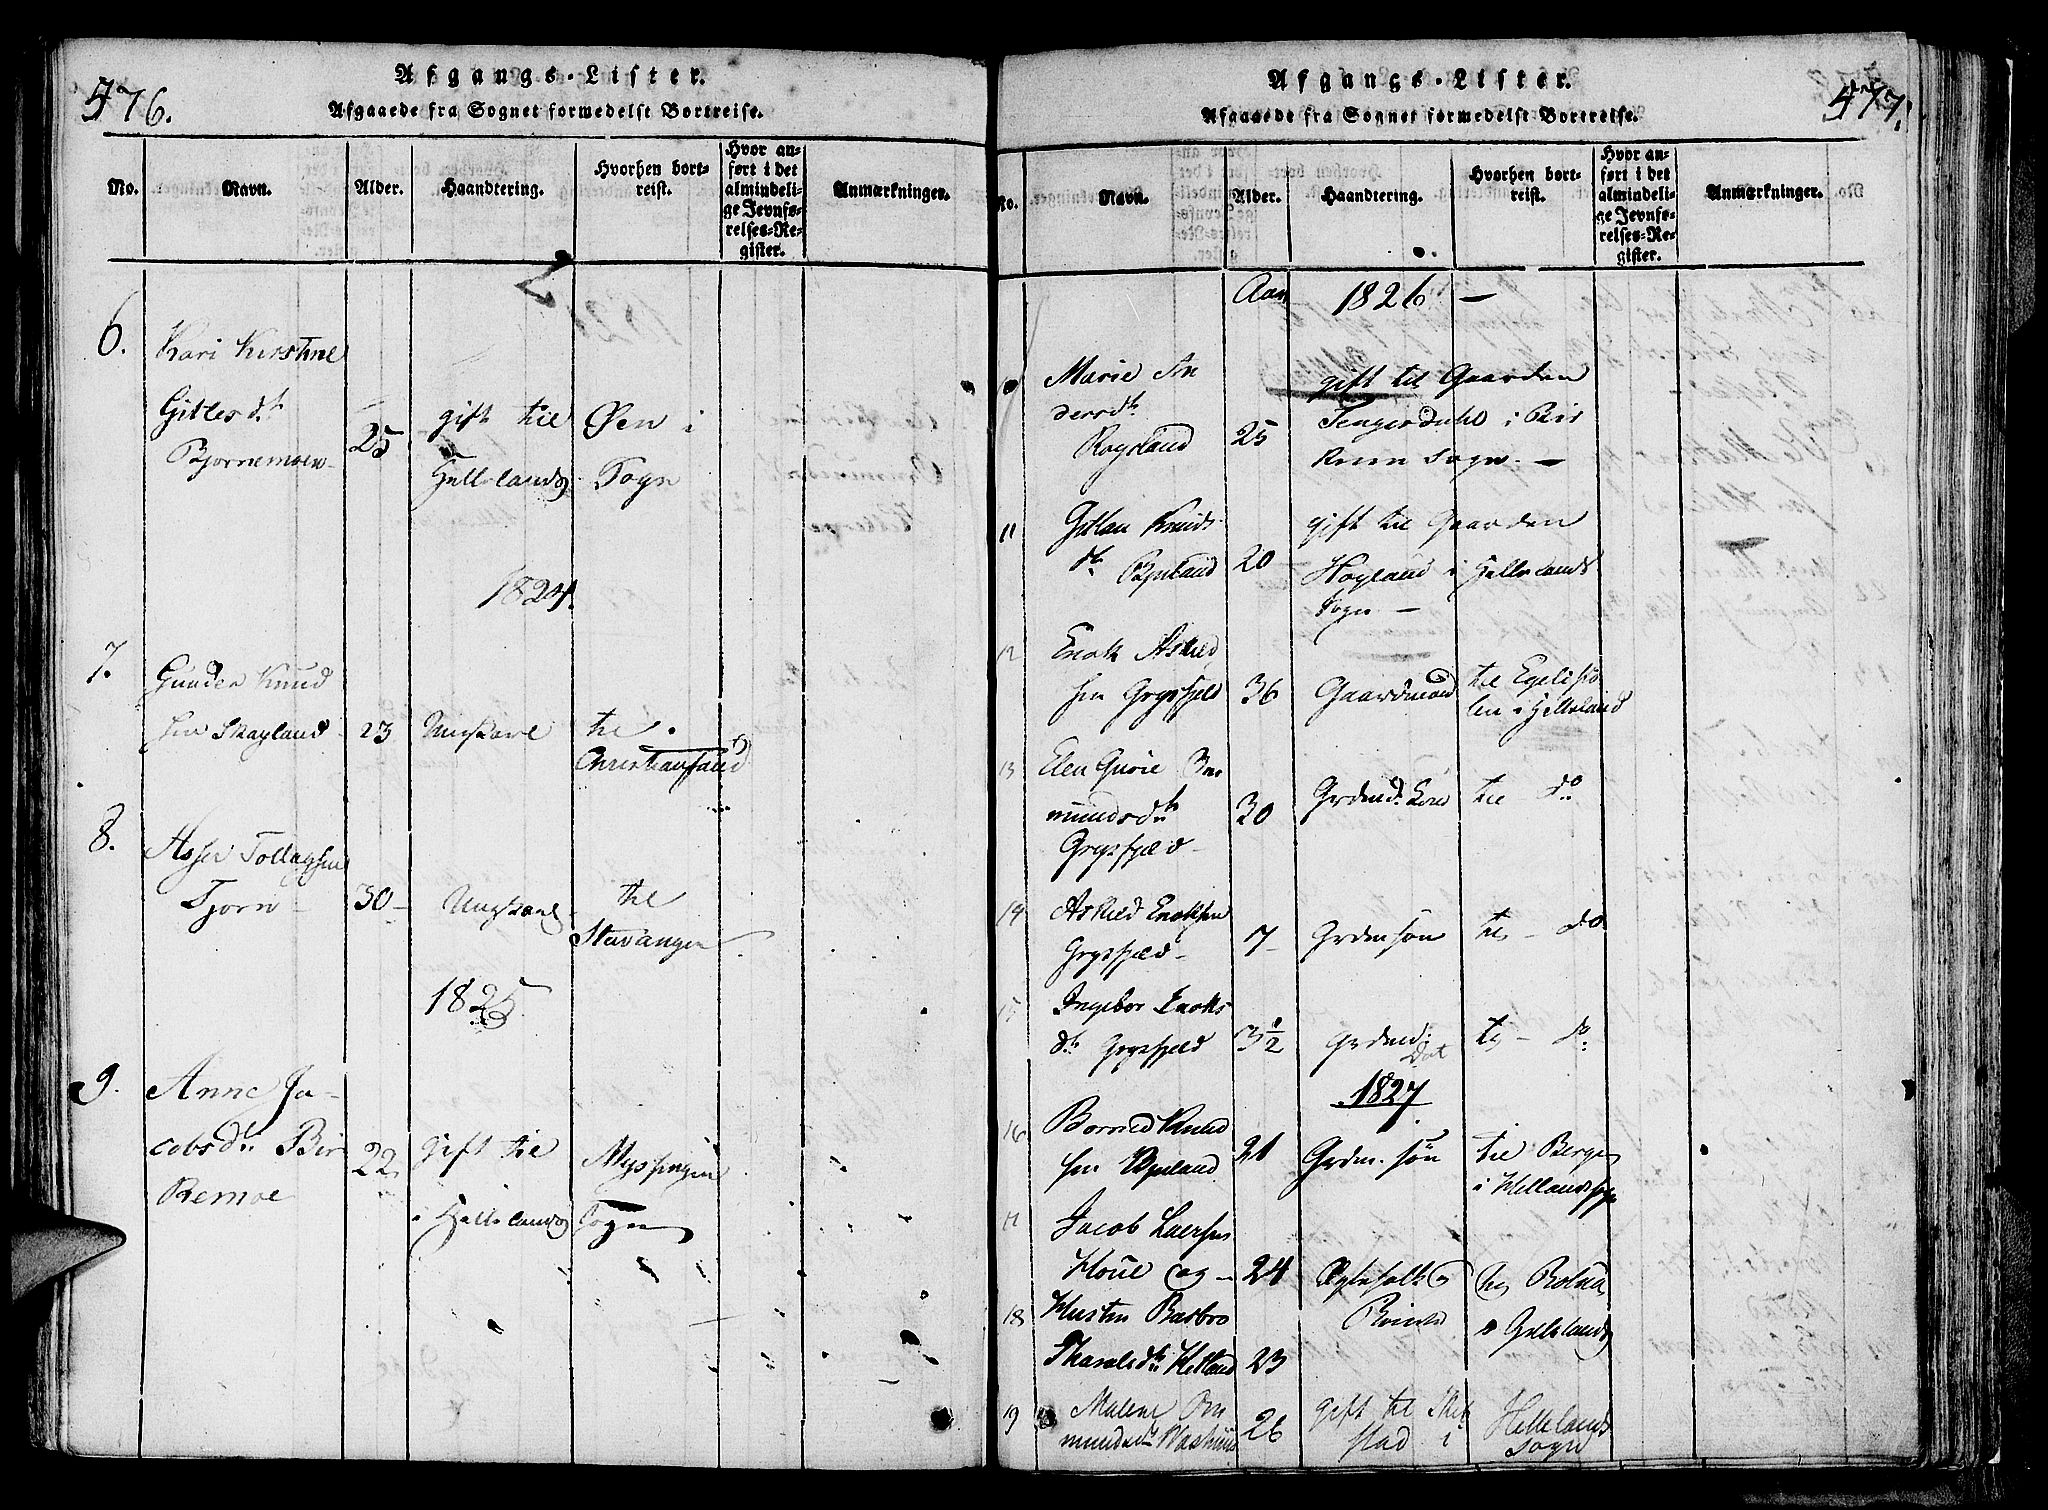 576.
Afgangs-Lister.
Afgaaede fra Sognet formedelst Bortreise.
No.
Navn.
Alder.
Haandtering.
Hvorhen bort-
reist.
Hvor an-
ført i det
almindeli-
ge Jevnfø-
relses-Re-
gister.
Anmærkninger.
6.
Kari Kirstine
Gitlesdt.
Bjornemoen
25
gift til Øen i
Hellelands Sogn
1824.
7.
Gunder Knud
sen Skagland
23
Ungkarl
til
Christiansand
8.
Asser Tollagsen
Tjorn
30
Ungkarl
til
Stavanger
1825.
9.
Anne Ja-
cobsdt. Bir
Remoe
22
gift til Myssingen
i Hellelands Sogn
577.
Afgangs-Lister.
Afgaaede fra Sognet formedelst Bortreise.
No.
Navn.
Alder.
Haandtering.
Hvorhen bort-
reist.
Hvor an-
ført i det
almindeli-
ge Jevnfø-
relses-Re-
gister.
Anmærkninger.
Aar 1826 —
Marie An
dersdt.
Rogsland
25
gift til Gaarden
Tengesdahl i Bir
Krem Sogn. —
11
Gitlau Knuds
dt.
20
gift til Gaarden
Høyland i Hellelands
Sogn —
12
Enok Askild
sen Grysfjeld
36
Gaardmand
til Egelistø
len i Helleland
13
Elen Gurie Om
mundsdt.
Grysfjeld
30
Grdmd. Kone
til do
14
Askild Enoksen
Grysfjeld
7
Grdmsøn
til do
15
Ingebor Enoks
dt. Grysfjeld
3½
Grdmd:
Dat
til do
1827
16
Knud
sen
21
Grdm. søn
til Berge
i
17
Jacob Laersen
Houe og
24
til
Hellelands
18
Kirsten Barbro
Tharalsdt. Hetland
23
19
Malene Om
mundsdt.
26
gift til
stad i
Hellelands
Sogn